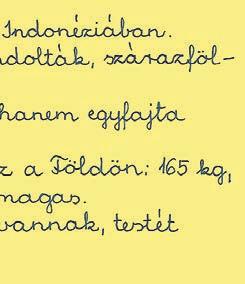 Indonéziában.
ndolták, szárazföl-
hanem egyfajta
z a Földön: 165 kg,
magas.
vannak, testét